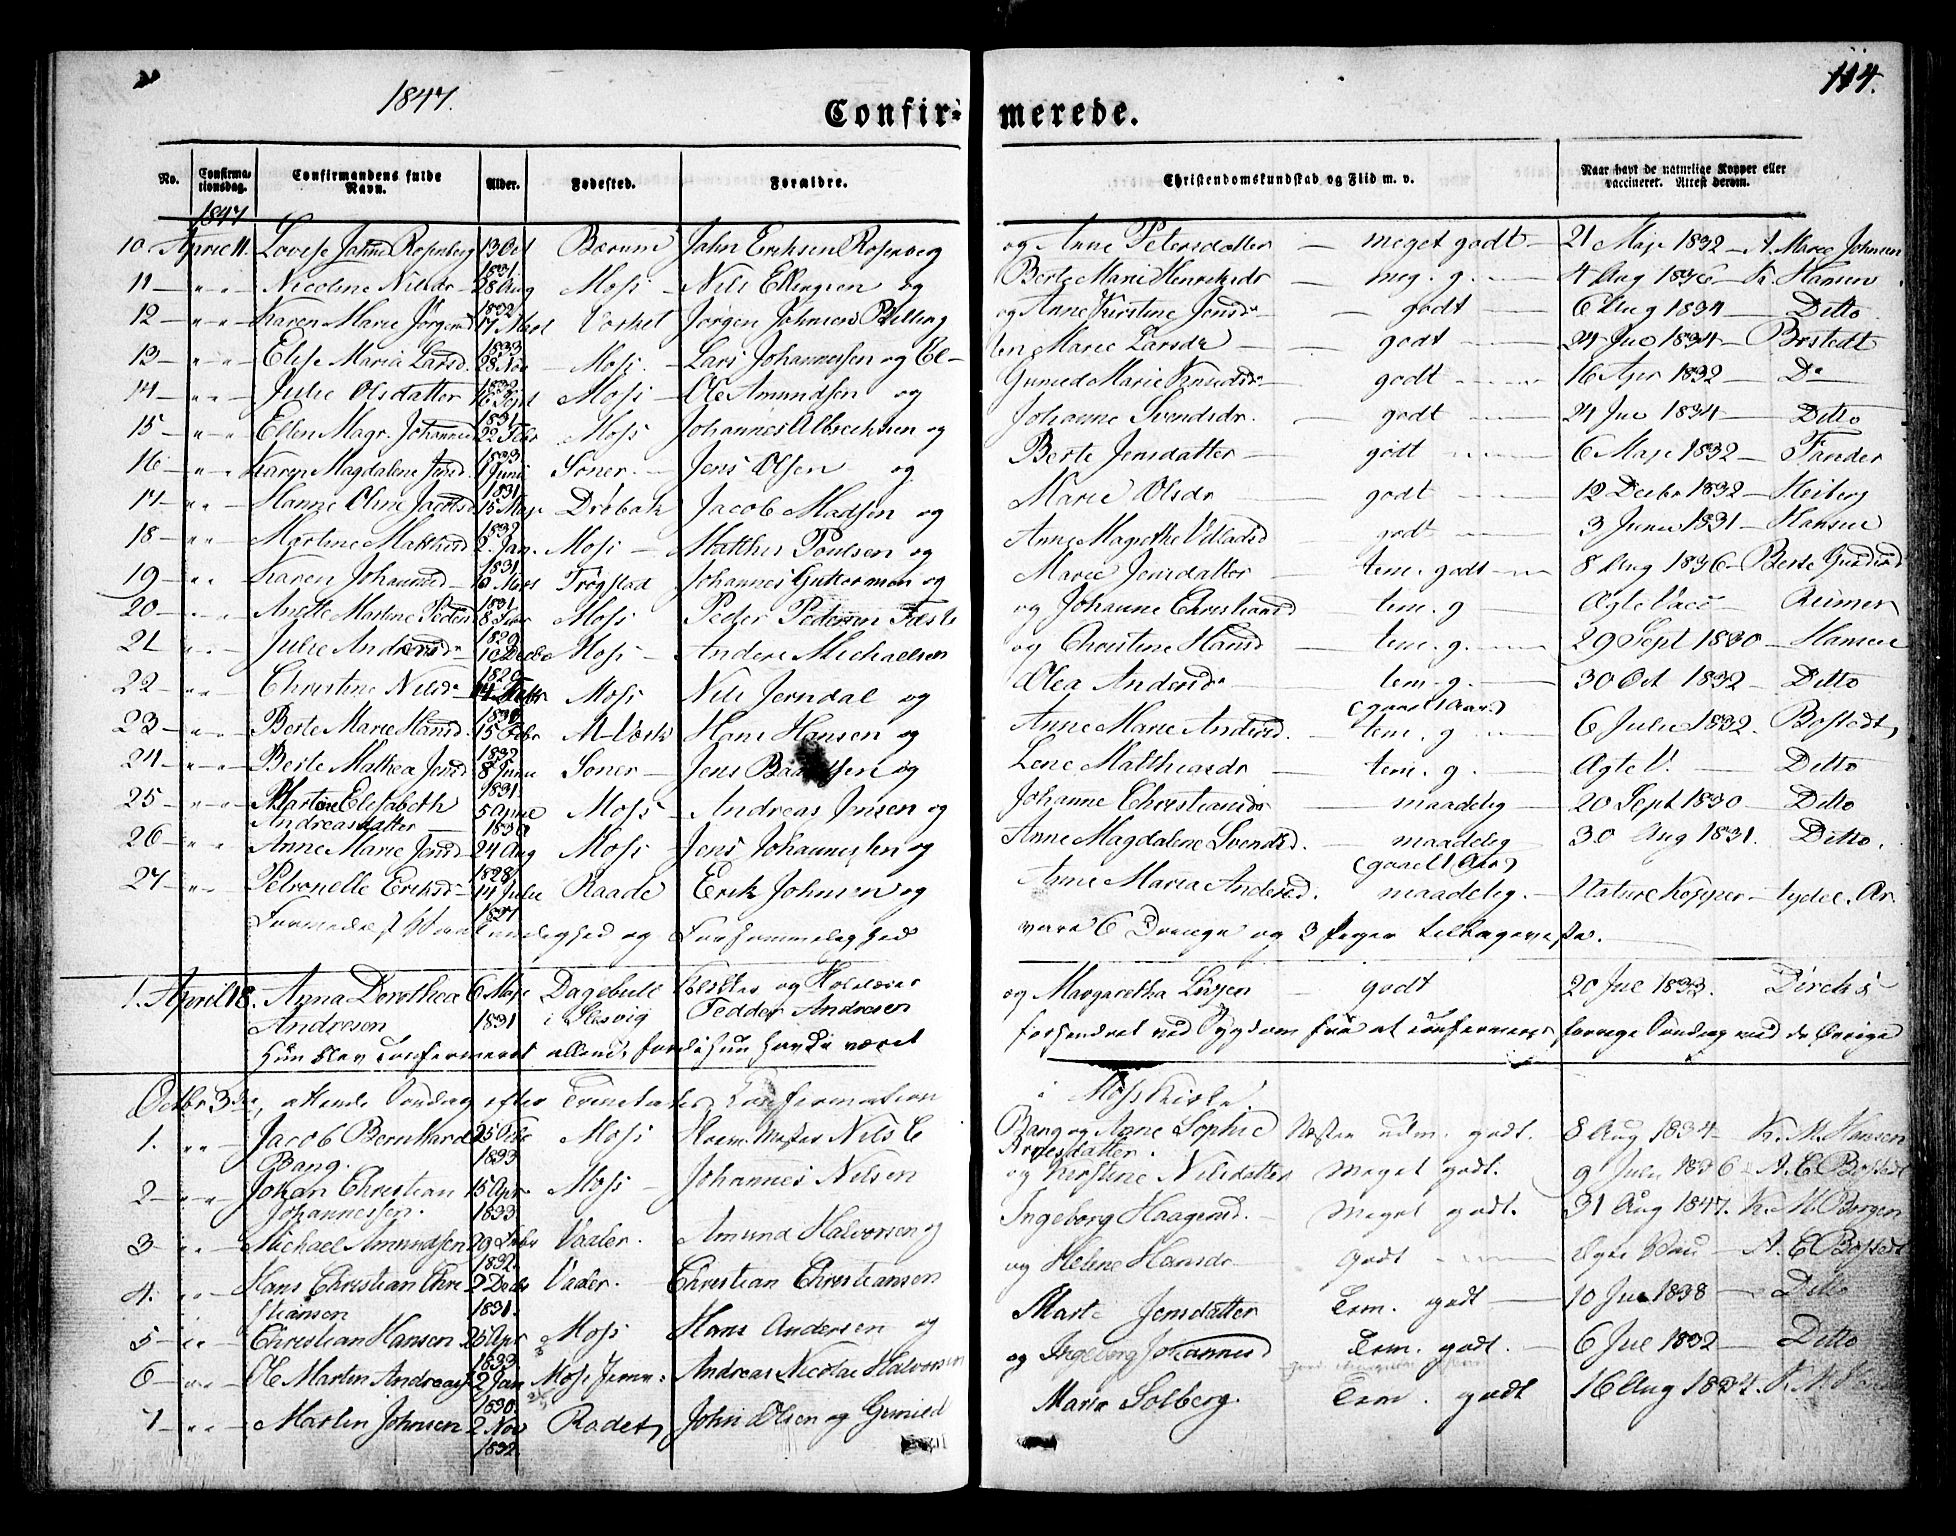 1847.
114.
Confir= merede.
No. Confirmationsdag. Confirmandens fulde Navn. Alder. Fødested. Forældre. Christendomskundskab og Flid m. v. Naar havt de naturlige Kopper eller vaccineret. Attest derom.
1847
10. April 11. Lovise Rosenberg 13 Oct 1831. Bærum John Eriksen Rosenberg og Anne Petersdatter — meget godt — 21 Maji 1832 — A. Marie Johnsen
11 — " " — Nicoline Nilsdr 28 Aug 1832 Moss — Nils Ellingsen og Berte Marie Henriksdr — meg. g. — 4 Aug 1836 — K. Hansen
12 — " " — Karen Marie Jørgensd 17 1833 Jørgen Johnsen Billing og Anne Kirstine Jensdr — godt — 6 Aug 1834 — Ditto
13 — " " — Elise Maria Larsd. 28 Nov 1832 Moss. — Lars Johannessen og El- len Marie Larsdr — godt — 24 1834 — Bostedt
14 — " " — Julie Olsdatter 16 Sept 1831 Moss — Ole Amundsen og Gunild Marie Knudsdr — godt — 16 Apr 1832 — Do
15 — " " — Ellen Magr. Johannesd 22 Febr 1833 Moss Johannes Albrechtsen og Johanne Svendsdr. — godt — 24 1834 — Ditto
16 — " " — Karen Magdalene Jensd 1 Juni 1831 Soner. — Jens Olsen og Berte Jensdatter — godt — 6 Maji 1832 — Tander
17 — " " Hanne Oline Jacobsd 15 Maji 1832 Drøbak Jacob Madsen og Marie Olsdr — godt — 12 Decbr 1832 — Heiberg
18 — " " — Martine Mathisd 2. Jan. 1831 Moss — Matthis Poulsen og Anne Magrethe Villadsd — godt — 3 Juni 1831 — Hansen
19 — " " Karen Johannesd — 1831 Trøgstad Johannes Guttormsen og Marie Jensdatter — tem. godt — 8 Aug 1836 — Berte
20 — " — Anette Martine Peders 8 1829 Moss Peder Pedersen og Johanne Christiansd tem. g — Ægte Vacc — Reimer
21 — " " — Julie Andersdr 10 Decbr 1829 Moss — Anders Michaelsen og Christine Hansd — tem. g. — 29 Sept 1830 — Hansen
22 — " " Christine Nilsdr 14 1830 Moss Nils Jerndal og Olea Andersdr — tem. g. — 30 Oct 1832 — Ditto
23 — " " — Berte Marie Hansd. 15 Febr 1832 Hans Hansen og Anne Marie Andersd. — tem. g — 6 Julie 1832. Bostedt
24 — " " — Berte Mathea Jensd 8 Juni 1831 Soner — Jens og Lene Matthiasdr — tem. g. — Ægte V. — Ditto
25 — " " — Martine Elisabeth 5 1830 Moss — Andreas Jensen og Johanne Christiansdr — maadelig — 20 Sept 1830 — Ditto
Andreasdatter
26 — " " — Anne Marie Jensd 24 Aug 1828 Moss Jens Johannessen og Anne Magdalene Svendsd. — maadelig — 30 Aug 1831. Ditto.
27 — " " — Petronelle Eriksd — 14 Julie 1827 Raade Erik Johnsen og Anne Maria Andersd. maadelig. — Naturl. Kopper — tydel. Ar
og Forsømmelighed
vare 6 Drenge og 3 Piger tilbageviste.
1. April 18. Anna Dorothea 6 Maji 1831 Dagebüll og Margaretha — godt 20 Jul 1833. Dircks
Andresen i Slesvig Fedder Andresen
Hun blev confirmeret allene, fordi hun havde været forhindret ved Sygdom fra at confirmeres forrige Søndag med de Øvrige
Octbr 3die, attende Søndag efter Trinitatis, Confirmation i Moss Kirke
1. " " — Jacob Bernhard 25 Febr 1833 Moss Nils C Bang og Anne Sophie Næsten udm. godt. 8 Aug 1834 — K. M. Hansen
Bang. Arnesdatter.
2 — " " — Johan Christian 15 Apr 1833 Moss — Johannes Nilsen og Kirstine Nilsdatter Meget godt. 9 Juli 1836 A. C. Bostedt
Johannessen.
3 — " " — Michael Amundsen 29 Febr 1832. Vaaler. Amund Halvorsen og Ingeborg Haagensd. — Meget godt. 31 Aug 1847. K. M. Borgen
4. " " — Hans Christian Chri 2 Decbr 1831. Vaaler. — Christian Christiansen og Helene Hansdr — Godt — Ægte — A. C. Bostedt
stiansen
5 " " — Christian Hansen 25 Apr 1833. Moss Hans Andersen og Marte Jensdatter Tem. godt — 10 1838 — Ditto
6 — " " — Ole Martin Andreas 2 Jan 1830. Andreas Nicolai Halvorsen og Ingeborg Johannesd Tem. godt. — 6 Jul 1832 — Ditto
7 — " " — Martin Johnsen 2 Nov 1832. Raade, John Olsen og Gunild Maria Solberg. Tem. godt 16 Aug 1834.